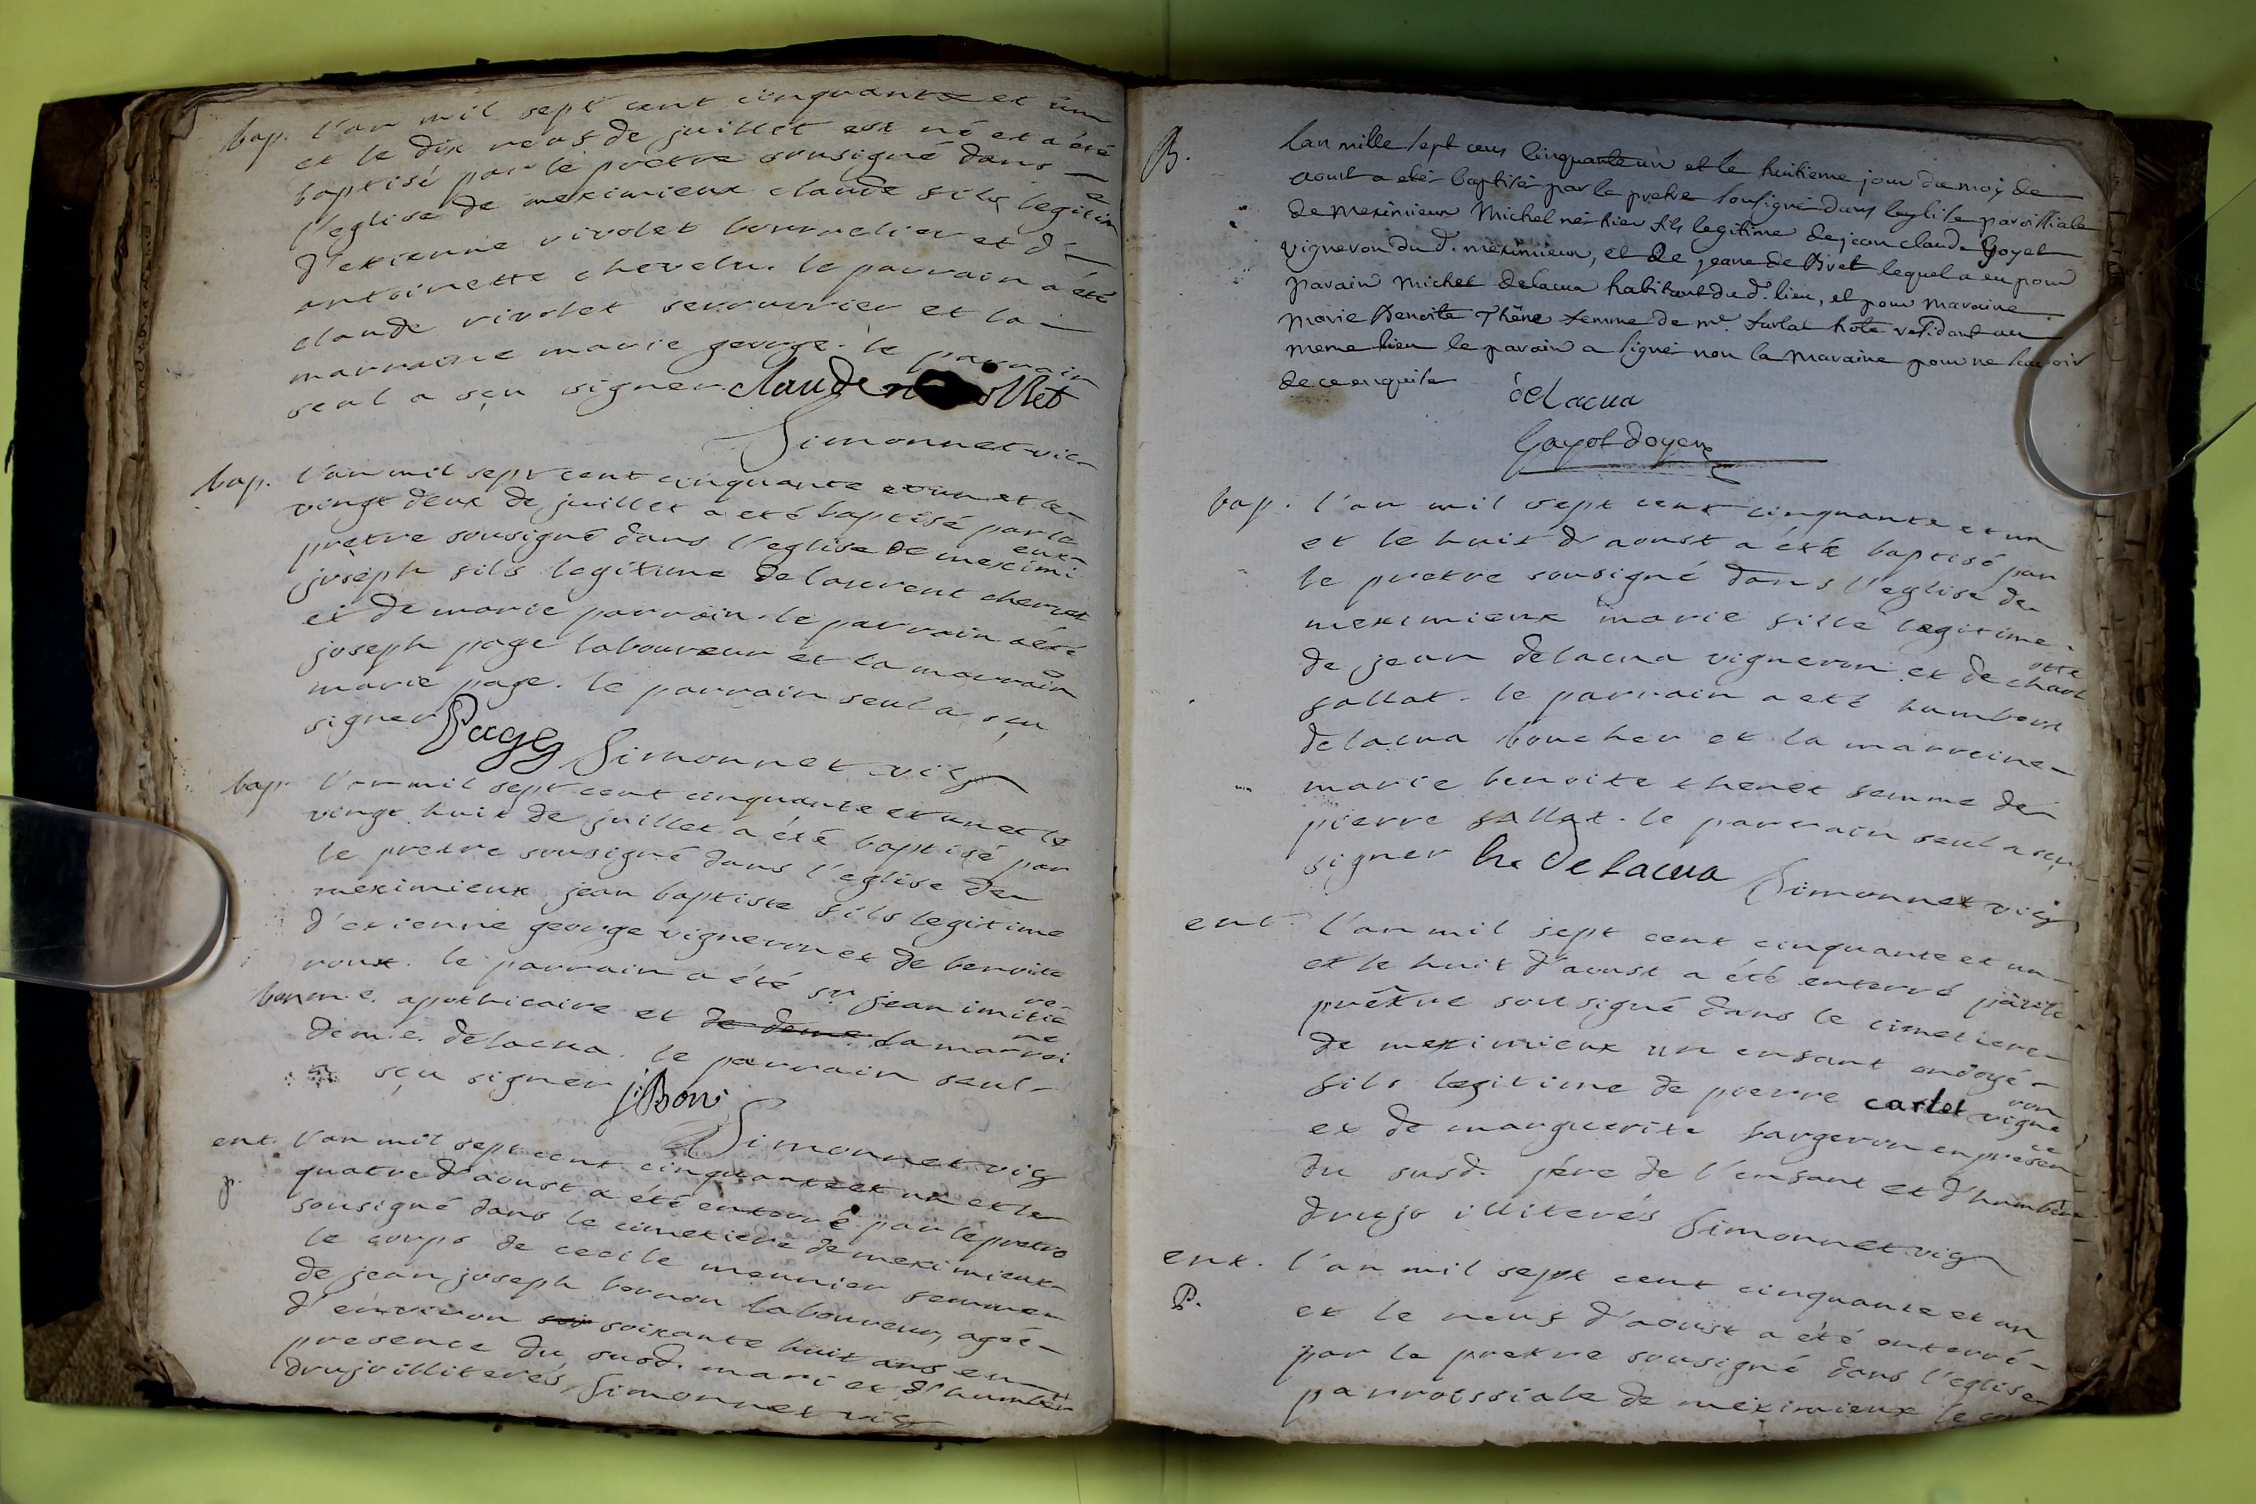 bap. l'an mil sept cent cinquante et un
et le dix neuf de juillet est né et a été
baptisé par le pretre sousigné dans
l'eglise de meximieux claude fils legitime
d'etienne rivolet bourrelier et d'
antoinette chevelu. le parrain a été
claude rivolet serrurier et la
marraine marie george. le parrain
seul a sçu signer claude r ollet
Simonnet vic
bap. l'an mil sept cent cinquante et un et le
vingt deux de juillet a eté baptisé par le
pretre sousigné dans l'eglise de meximieux
joseph fils legitime de laurent chervet
et de marie parrain. le parrain a été
joseph page laboureur et la marrain
marie page. le parrain seul a sçu
signer Page Simonnet vic
bap. l'an mil sept cent cinquante et un et le
vingt huit de juillet a été baptisé par
le pretre sousigné dans l'eglise de
meximieux jean baptiste fils legitime
d'etienne george vigneron et de benoite
roux. le parrain a été sr jean
bon m.e. apothicaire et de deme la marraine
dem.e. delacua. le parrain seul
a sçu signer j: Bon
Simonnet vic
ent. l'an mil sept cent cinquante et un et le
p. quatre d'aoust a été enterré par le pretre
sousigné dans le cimetiere de meximieux
le corps de cecile meunier femme
de jean joseph bornon laboureur, agée
d'environ soi soixante huit ans en
presence du susd. mari et d'humbert
drujo illiterés Simonnet vic
B. lan mille sept cens Cinquante un et le huitieme jour du moy de
aoust a eter baptisér par le pretre sousigné dans leglise paroissiale
de Meximieux Michel né hier fils legitime de jean claude Goyet
vigneron du d. meximieux, et de jeane de Bivet lequel a eu pour
parain Michel delacua habitant du d. lieu, et pour maraine
Marie Benoite Thêne femme de me. fallat hote residant au
meme lieu le parain a signé non la Maraine pour ne scavoir
de ce enquise
delacua
Gayot doyen
bap. l'an mil sept cent cinquante et un
et le huit d'aoust a été baptisé par
le pretre sousigné dans l'eglise de
meximieux marie fille legitime
de jean delacua vigneron et de charlotte
fallat. le parrain a eté humbert
delacua boucher et la marreine
marie benoite thenet femme de
pierre fallat. le parrain seul a sçu
signer h. De Lacua Simonnet vic
ent. l'an mil sept cent cinquante et un
et le huit d'aoust a été enterré par le
prêtre sousigné dans le cimetiere
de meximieux un enfant ondoyé
fils legitime de pierre carlet vigneron
et de marguerite bargeron en presence
du susd. père de l'enfant et d'humbert
drujo illiterés Simonnet vic
ent. l'an mil sept cent cinquante et un
P. et le neuf d'aoust a été enterré
par le pretre sousigné dans l'eglise
parroissiale de meximieux le corps